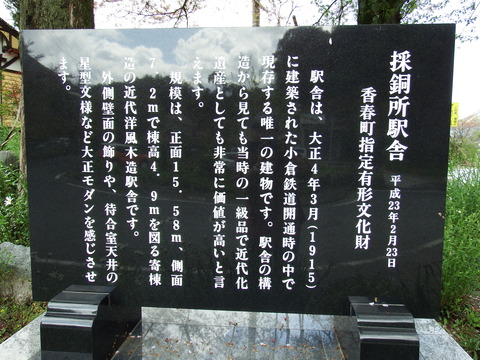 採銅所駅舎 平成23年2月23日
香春町指定有形文化財
駅舎は、大正4年3月(1915)
に建築された小倉鉄道開通時の中で
現存する唯一の建物です。駅舎の構
造から見ても当時の一級品で近代化
遺産としても非常に価値が高いと言
えます。
規模は、正面15．58m、側面
7．2mで棟高4．9mを図る寄棟
造の近代洋風木造駅舎です。
外側壁面の飾りや、待合室天井の
星型文様など大正モダンを感じさせ
ます。